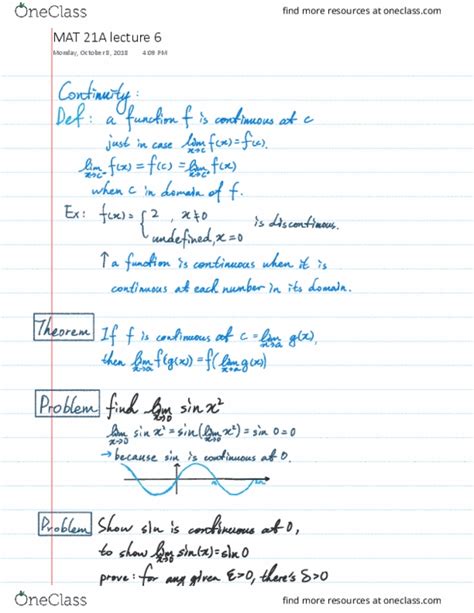 OneClass
find more resources at oneclass.com
MAT 21A lecture 6
Monday, October 8, 2018 4:09 PM
Continuity:
Def: a function f is continuous at c
just in case lim x→c f(x)=f(c).
lim x→c⁻ f(x) = f(c) = lim x→c⁺ f(x)
when c in domain of f.
Ex: f(x) = { 2 , x≠0
undefined, x=0
is discontinuous.
↑ a function is continuous when it is
continuous at each number in its domain.
Theorem If f is continuous at c = lim x→a g(x),
then lim x→a f(g(x)) = f( lim x→a g(x))
Problem find lim x→0 sin x²
lim x→0 sin x² = sin( lim x→0 x²) = sin 0 = 0
→ because sin is continuous at 0.
Problem Show sin is continuous at 0,
to show lim x→0 sin(x) = sin 0
prove: for any given ε>0, there's δ>0
OneClass
find more resources at oneclass.com